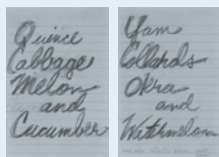 Quince
Cabbage
Melon
and
Cucumber
Yam
Collards
Okra
and
Watermelon